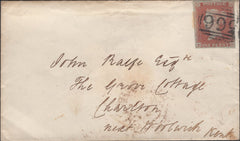 John Ralfe Esqre
The Grove Cottage
Charlton
near Woolwich
Kent